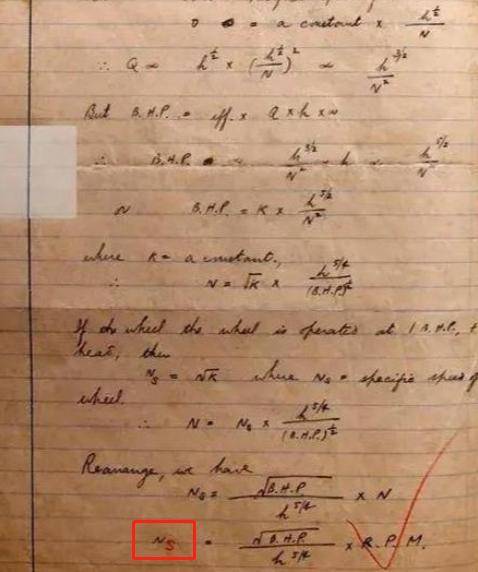 D = a constant × h^½/N
∴ Q ∝ h^½ × (h^½/N)² ∝ h^3/2/N²
But B.H.P. = eff. × Q × h × w
∴ B.H.P. ∝ h^3/2/N² · h ∝ h^5/2/N²
or B.H.P. = K × h^5/2/N²
where K = a constant.,
∴ N = √K × h^5/4/(B.H.P.)^½
If the wheel the wheel is operated at 1 B.H.P.,
head, then
Ns = √K where Ns = specific speed of
wheel.
∴ N = Ns × h^5/4/(B.H.P.)^½
Rearrange, we have
Ns = √B.H.P./h^5/4 × N
Ns = √B.H.P./h^5/4 × R.P.M.